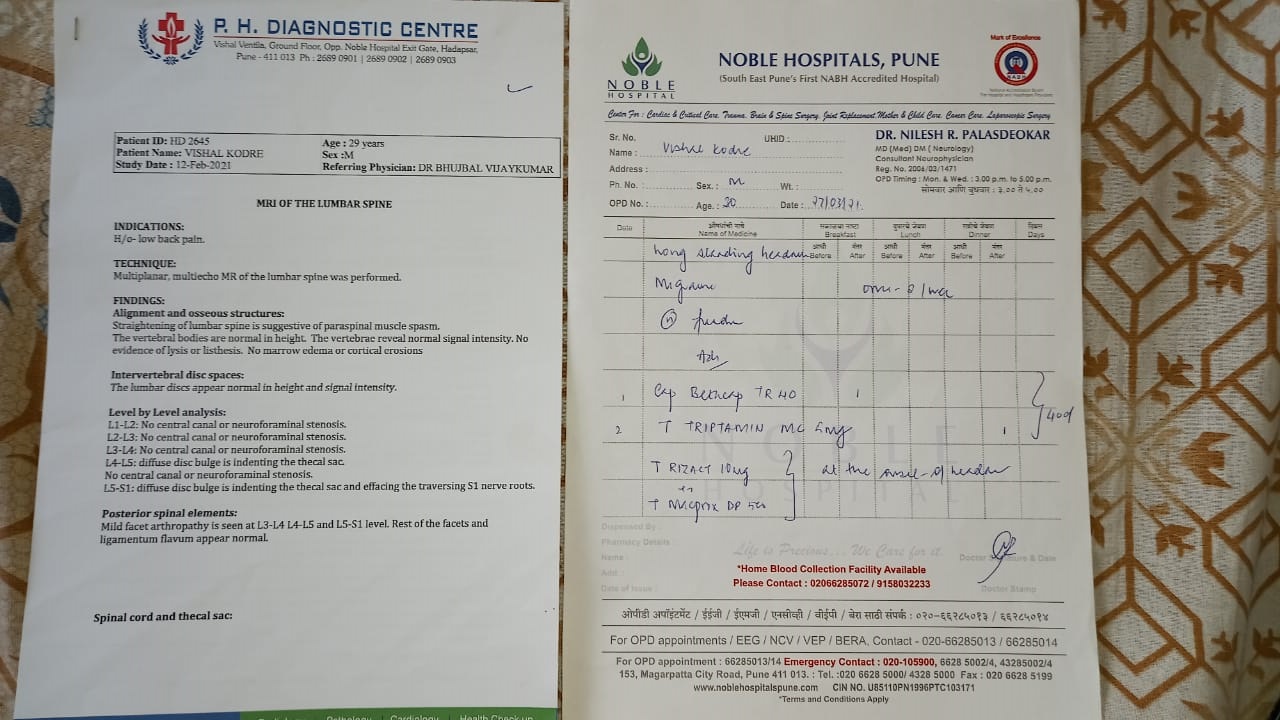 P. H. DIAGNOSTIC CENTRE
Vishal Ventila, Ground Floor, Opp. Noble Hospital Exit Gate, Hadapsar,
Pune - 411 013 Ph : 2689 0901 | 2689 0902 | 2689 0903
Patient ID: HD 2645 Age : 29 years
Patient Name: VISHAL KODRE Sex :M
Study Date : 12-Feb-2021 Referring Physician: DR BHUJBAL VIJAYKUMAR
MRI OF THE LUMBAR SPINE
INDICATIONS:
H/o- low back pain.
TECHNIQUE:
Multiplanar, multiecho MR of the lumbar spine was performed.
FINDINGS:
Alignment and osseous structures:
Straightening of lumbar spine is suggestive of paraspinal muscle spasm.
The vertebral bodies are normal in height. The vertebrae reveal normal signal intensity. No
evidence of lysis or listhesis. No marrow edema or cortical erosions
Intervertebral disc spaces:
The lumbar discs appear normal in height and signal intensity.
Level by Level analysis:
L1-L2: No central canal or neuroforaminal stenosis.
L2-L3: No central canal or neuroforaminal stenosis.
L3-L4: No central canal or neuroforaminal stenosis.
L4-L5: diffuse disc bulge is indenting the thecal sac.
No central canal or neuroforaminal stenosis.
L5-S1: diffuse disc bulge is indenting the thecal sac and effacing the traversing S1 nerve roots.
Posterior spinal elements:
Mild facet arthropathy is seen at L3-L4 L4-L5 and L5-S1 level. Rest of the facets and
ligamentum flavum appear normal.
Spinal cord and thecal sac:
NOBLE
HOSPITAL
NOBLE HOSPITALS, PUNE
(South East Pune's First NABH Accredited Hospital)
Mark of Excellence
NABH
Center For : Cardiac & Critical Care, Trauma, Brain & Spine Surgery, Joint Replacement Mother & Child Care, Cancer Care, Laparoscopic Surgery
Sr. No. UHID :
Name : Vishal Kodre
Address :
Ph. No. : Sex. : M Wt. :
OPD No. : Age. : 30 Date : 27/03/21
DR. NILESH R. PALASDEOKAR
MD (Med) DM ( Neurology)
Consultant Neurophysician
Reg. No. 2006/03/1471
OPD Timing : Mon. & Wed. : 3.00 p.m. to 5.00 p.m.
सोमवार आणि बुधवार : ३.०० ते ५.००
Date औषधांची नावे Name of Medicine सकाळचा नाष्टा Breakfast दुपारचे जेवण Lunch रात्रीचे जेवण Dinner दिवस Days
आधी Before नंतर After आधी Before नंतर After आधी Before नंतर After
Long standing headache
Migraine
Adv
1 Cap Betacap TR 40 1
2 T TRIPTAMIN MC 5mg 1
40d
T RIZACT 10mg at the onset of headache
T DP 500
NOBLE
HOSPITAL
Dispensed By :
Pharmacy Details :
Name :
Add :
Date of Issue :
Life is Precious... We Care for it.
Doctor Signature & Date
Doctor Stamp
*Home Blood Collection Facility Available
Please Contact : 02066285072 / 9158032233
ओपीडी अपॉइंटमेंट / ईईजी / ईएमजी / एनसीव्ही / वीईपी / बेरा साठी संपर्क : ०२०-६६२८५०१३ / ६६२८५०१४
For OPD appointments / EEG / NCV / VEP / BERA, Contact - 020-66285013 / 66285014
For OPD appointment : 66285013/14 Emergency Contact : 020-105900, 6628 5002/4, 43285002/4
153, Magarpatta City Road, Pune 411 013. : Tel. :020 6628 5000/ 4328 5000 Fax : 020 6628 5199
www.noblehospitalspune.com CIN NO. U85110PN1996PTC103171
*Terms and Conditions Apply